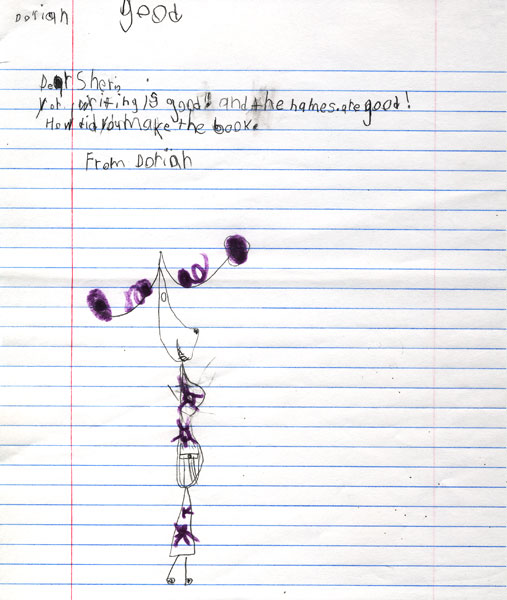 Doriah good
Dear Sheri,
Yor writing is good! and the names are good!
How did you make the book.
From Doriah